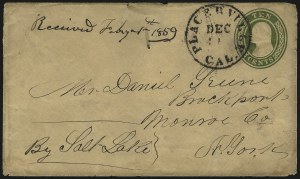 Received Feby 1st 1859
PLACERVILLE
DEC
CAL.
TEN
CENTS
Mr. Daniel Greene
Brockport
Monroe Co
By Salt Lake
N. York